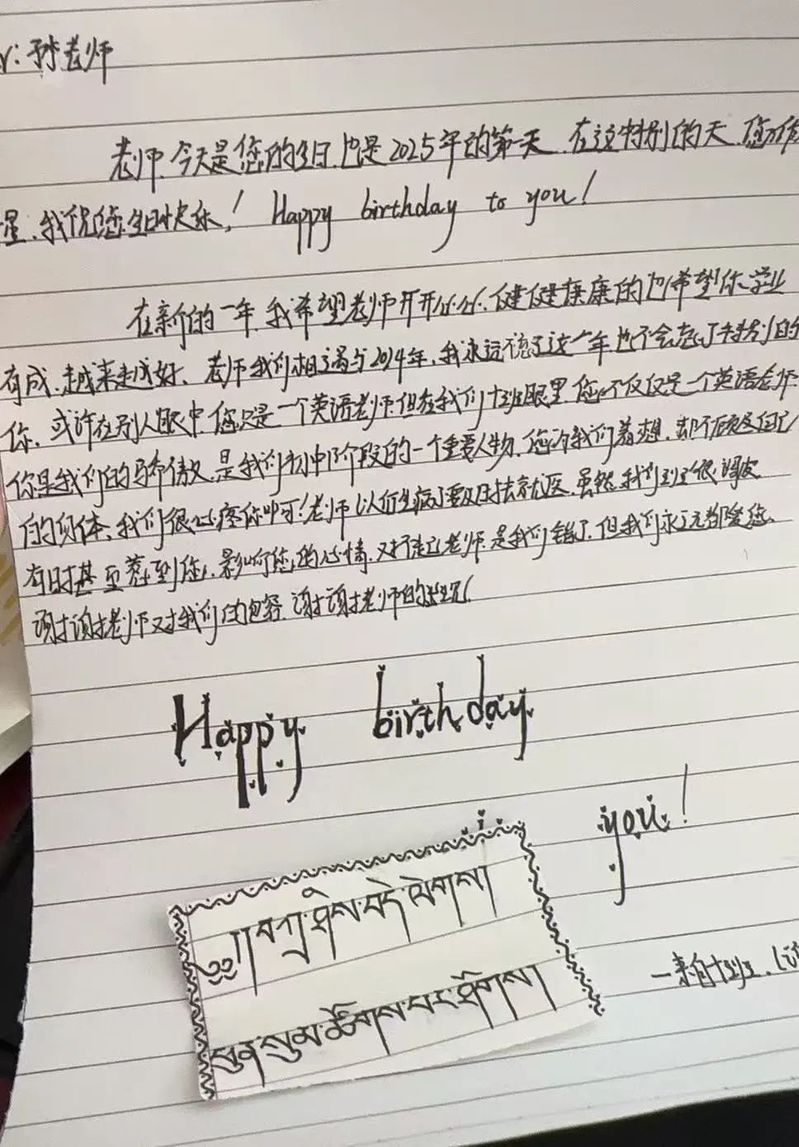 : 孙老师
老师 今天是您的生日 也是2025年的第一天 在这特别的天 您
星. 我祝您生日快乐! Happy birthday to you!
在新的一年 我希望老师开开心心、健健康康的 也希望你学业
有成、越来越好、老师我们相遇与2024年、我永远 这一年 也不会忘了特别的
你、或许在别人眼中 您只是一个英语老师 但在我们十班眼里 您不仅仅是一个英语老师
你是我们的骄傲、是我们初中阶段的一个重要人物、您为我们着想、却不顾及自己
的身体、我们很心疼你呀!老师 以后生病了要及 虽然 我们班很调皮
有时甚至惹到您、影响您的心情、对不起老师 是我们错了、但我们永远都爱您、
谢谢老师对我们的包容、谢谢老师的
Happy birthday
you!
༄༅། །བཀྲ་ཤིས་བདེ་ལེགས།
ཕུན་སུམ་ཚོགས་པར་ཤོག།
—来自十班.